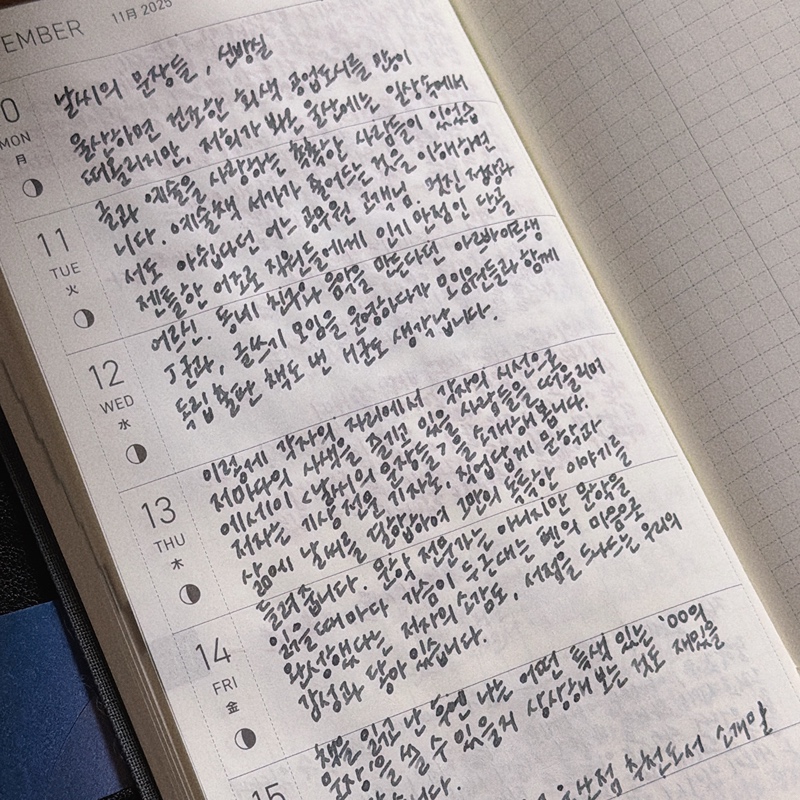 EMBER 11月 2025
0
MON
月
날씨의 문장들, 신방실
울산하면 건조한 회색 공업도시를 많이
떠올리지만, 저희가 봐온 울산에는 일상속에서
글과 예술을 사랑하는 톡톡한 사람들이 있었습
니다. 예술책 서가가 줄어드는 것은 이해하면
서도 아쉽다던 어느 공무원 고객님. 멋진 정장과
젠틀한 어조로 직원들에게 인기만점인 단골
어르신. 동네 친구와 음악을 만든다던 아르바이트생
J군과, 글쓰기 모임을 운영하다가 모임원들과 함께
독립출판 책도 낸 H군도 생각납니다.
11
TUE
火
12
WED
水
이렇게 각자의 자리에서 각자의 시선으로
저마다의 사색을 즐기고 있을 사람들을 떠올리며
에세이 <날씨의 문장들>을 소개해봅니다.
저자는 기상전문 기자로, 직업답게 문학과
삶에 날씨를 덧입하여 그만의 톡톡한 이야기를
들려줍니다. 문학 전문가는 아니지만 문학을
읽을 때마다 가슴이 두근대는 팬의 마음으로
완성했다는 저자의 소감도, 서점을 드나드는 우리의
감성과 닮아 있습니다.
13
THU
木
14
FRI
金
책을 읽고 난 후엔 나는 어떤 특색 있는 '00의
문장'을 쓸 수 있을지 상상해 보는 것도 재밌을
습니다.
15
울산점 추천도서 소개말